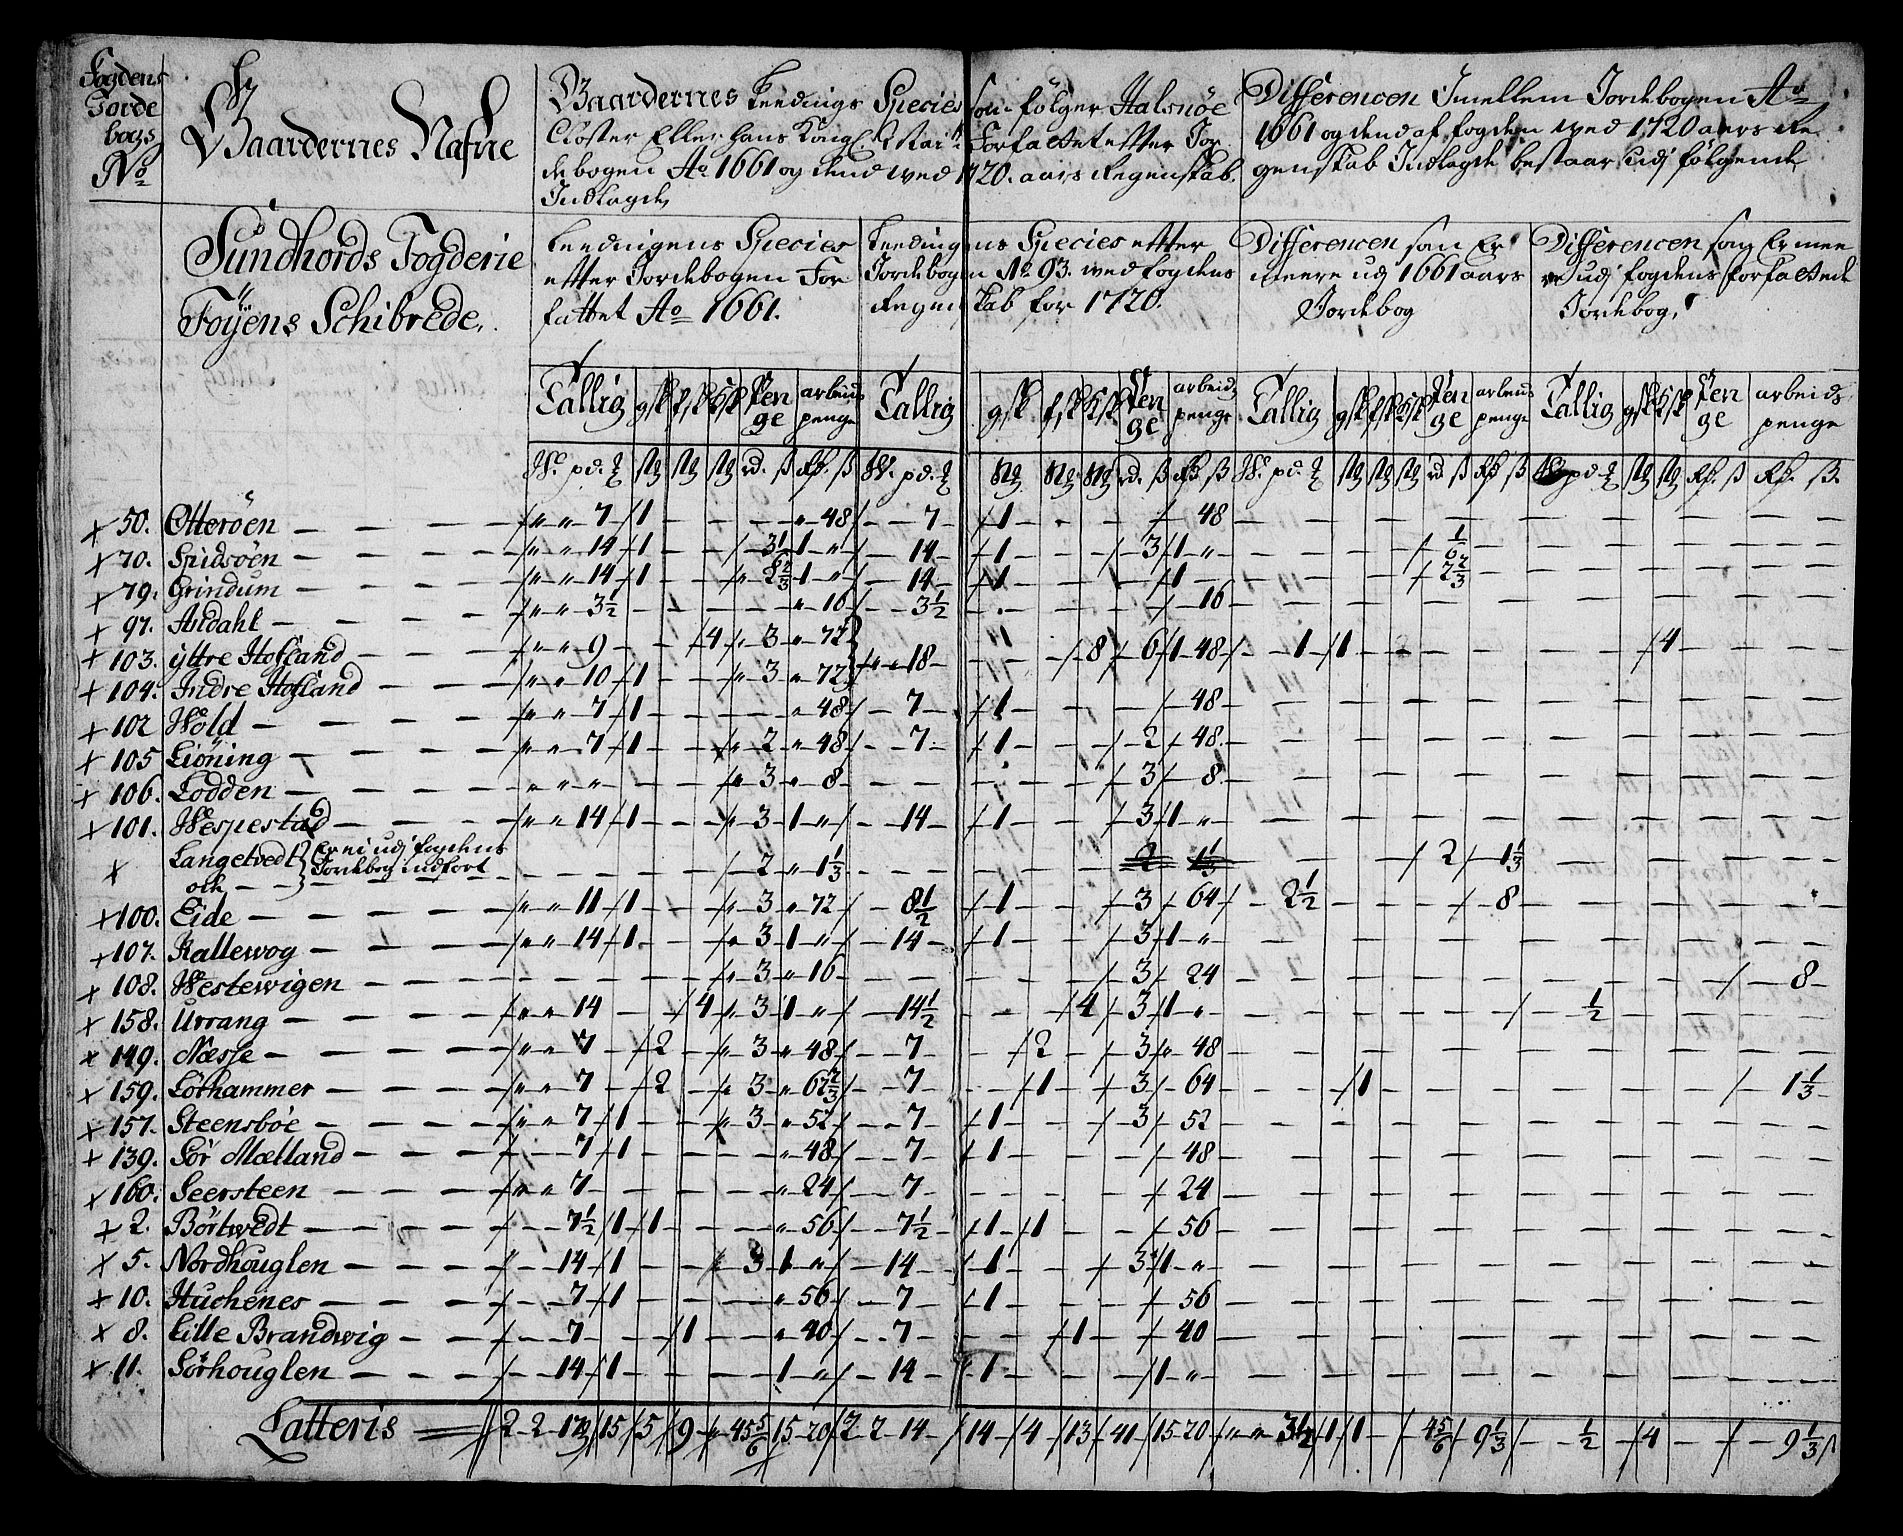 Fogdens
Jorde
bogs
No
Gaardernes Nafne
Gaardernes Leedings Species som følger Halsnøe
Closter Eller hans Kongl. Maits Forfattet etter Jor
debogen Ao 1661 og dend wed 1720. aars Regenskab
Indlagde
Differencen Imellem Jordebogen Ao
1661 og dend af fogden wed 1720 aars Re
genskab Indlagde bestaar udj følgende
Sundhords Fogderie
Føÿens Schibrede.
Leedingens Species
etter Jordebogen For
fattet Ao 1661.
Leedingens Species etter
Jordebogen No 93. wed fogdens
Regenskab for 1720.
Differencen som Er
meere udj 1661 aars
Jordebog
Differencen som Er mee
re udj fogdens forfattede
Jordebog,
Tallig gsk fsk Ksk Pen ge arbeids penge Tallig gsk fsk Ksk Pen ge arbeids penge Tallig gsk fsk Ksk Pen ge arbeids penge Tallig gsk Ksk Pen ge arbeids penge
+ 50. Otterøen 7 1 48 7 1 48
+ 70. Spidsøen 14 1 3 1/6 1 14 1 3 1 1/6
+ 79. Grindum 14 1 2 2/3 1 14 1 1 2 2/3
+ 97. Andahl 3 1/2 16 3 1/2 16
+ 103. yttre Hofland 9 4 3 72 18 8 6 1 48 1 1 4
+ 104. Indre Hofland 10 1 3 72
+ 102 Wold 7 1 48 7 1 48
+ 105 Liøning 7 1 2 48 7 1 2 48
+ 106. Lodden 3 8 3 8
+ 101. Wespestad 14 1 3 1 14 1 3 1
+ Langetvedt Er ei udj fogdens
och Jordebog indført 2 1 1/3 2 1 1/3 2 1 1/3
+ 100. Eide 11 1 3 72 8 1/2 1 3 64 2 1/2 8
+ 107. Kallewog 14 1 3 1 14 1 3 1
+ 108. Westewigen 3 16 3 24 8
+ 158. Urrang 14 4 3 1 14 1/2 4 3 1 1/2
+ 149. Næsse 7 2 3 48 7 2 3 48
+ 159. Lørhammer 7 2 3 62 2/3 7 1 3 64 1 1 1/3
+ 157. Steensbøe 7 1 3 52 7 1 3 52
+ 139. Sør Mælland 7 1 48 7 1 48
+ 160. Seersteen 7 24 7 24
+ 2. Børtwedt 7 1/2 1 1 56 7 1/2 1 1 56
+ 5. Nordhouglen 14 1 3 1 14 1 3 1
+ 10. Huchenes 7 1 56 7 1 56
+ 8. Lille Brandwig 7 1 40 7 1 40
+ 11. Sørhouglen 14 1 1 14 1 1
Latteris 2 2 15 5 9 45 5/6 15 20 2 2 14 14 4 13 41 15 20 3 1/2 1 1 4 5/6 9 1/3 1/2 4 9 1/3